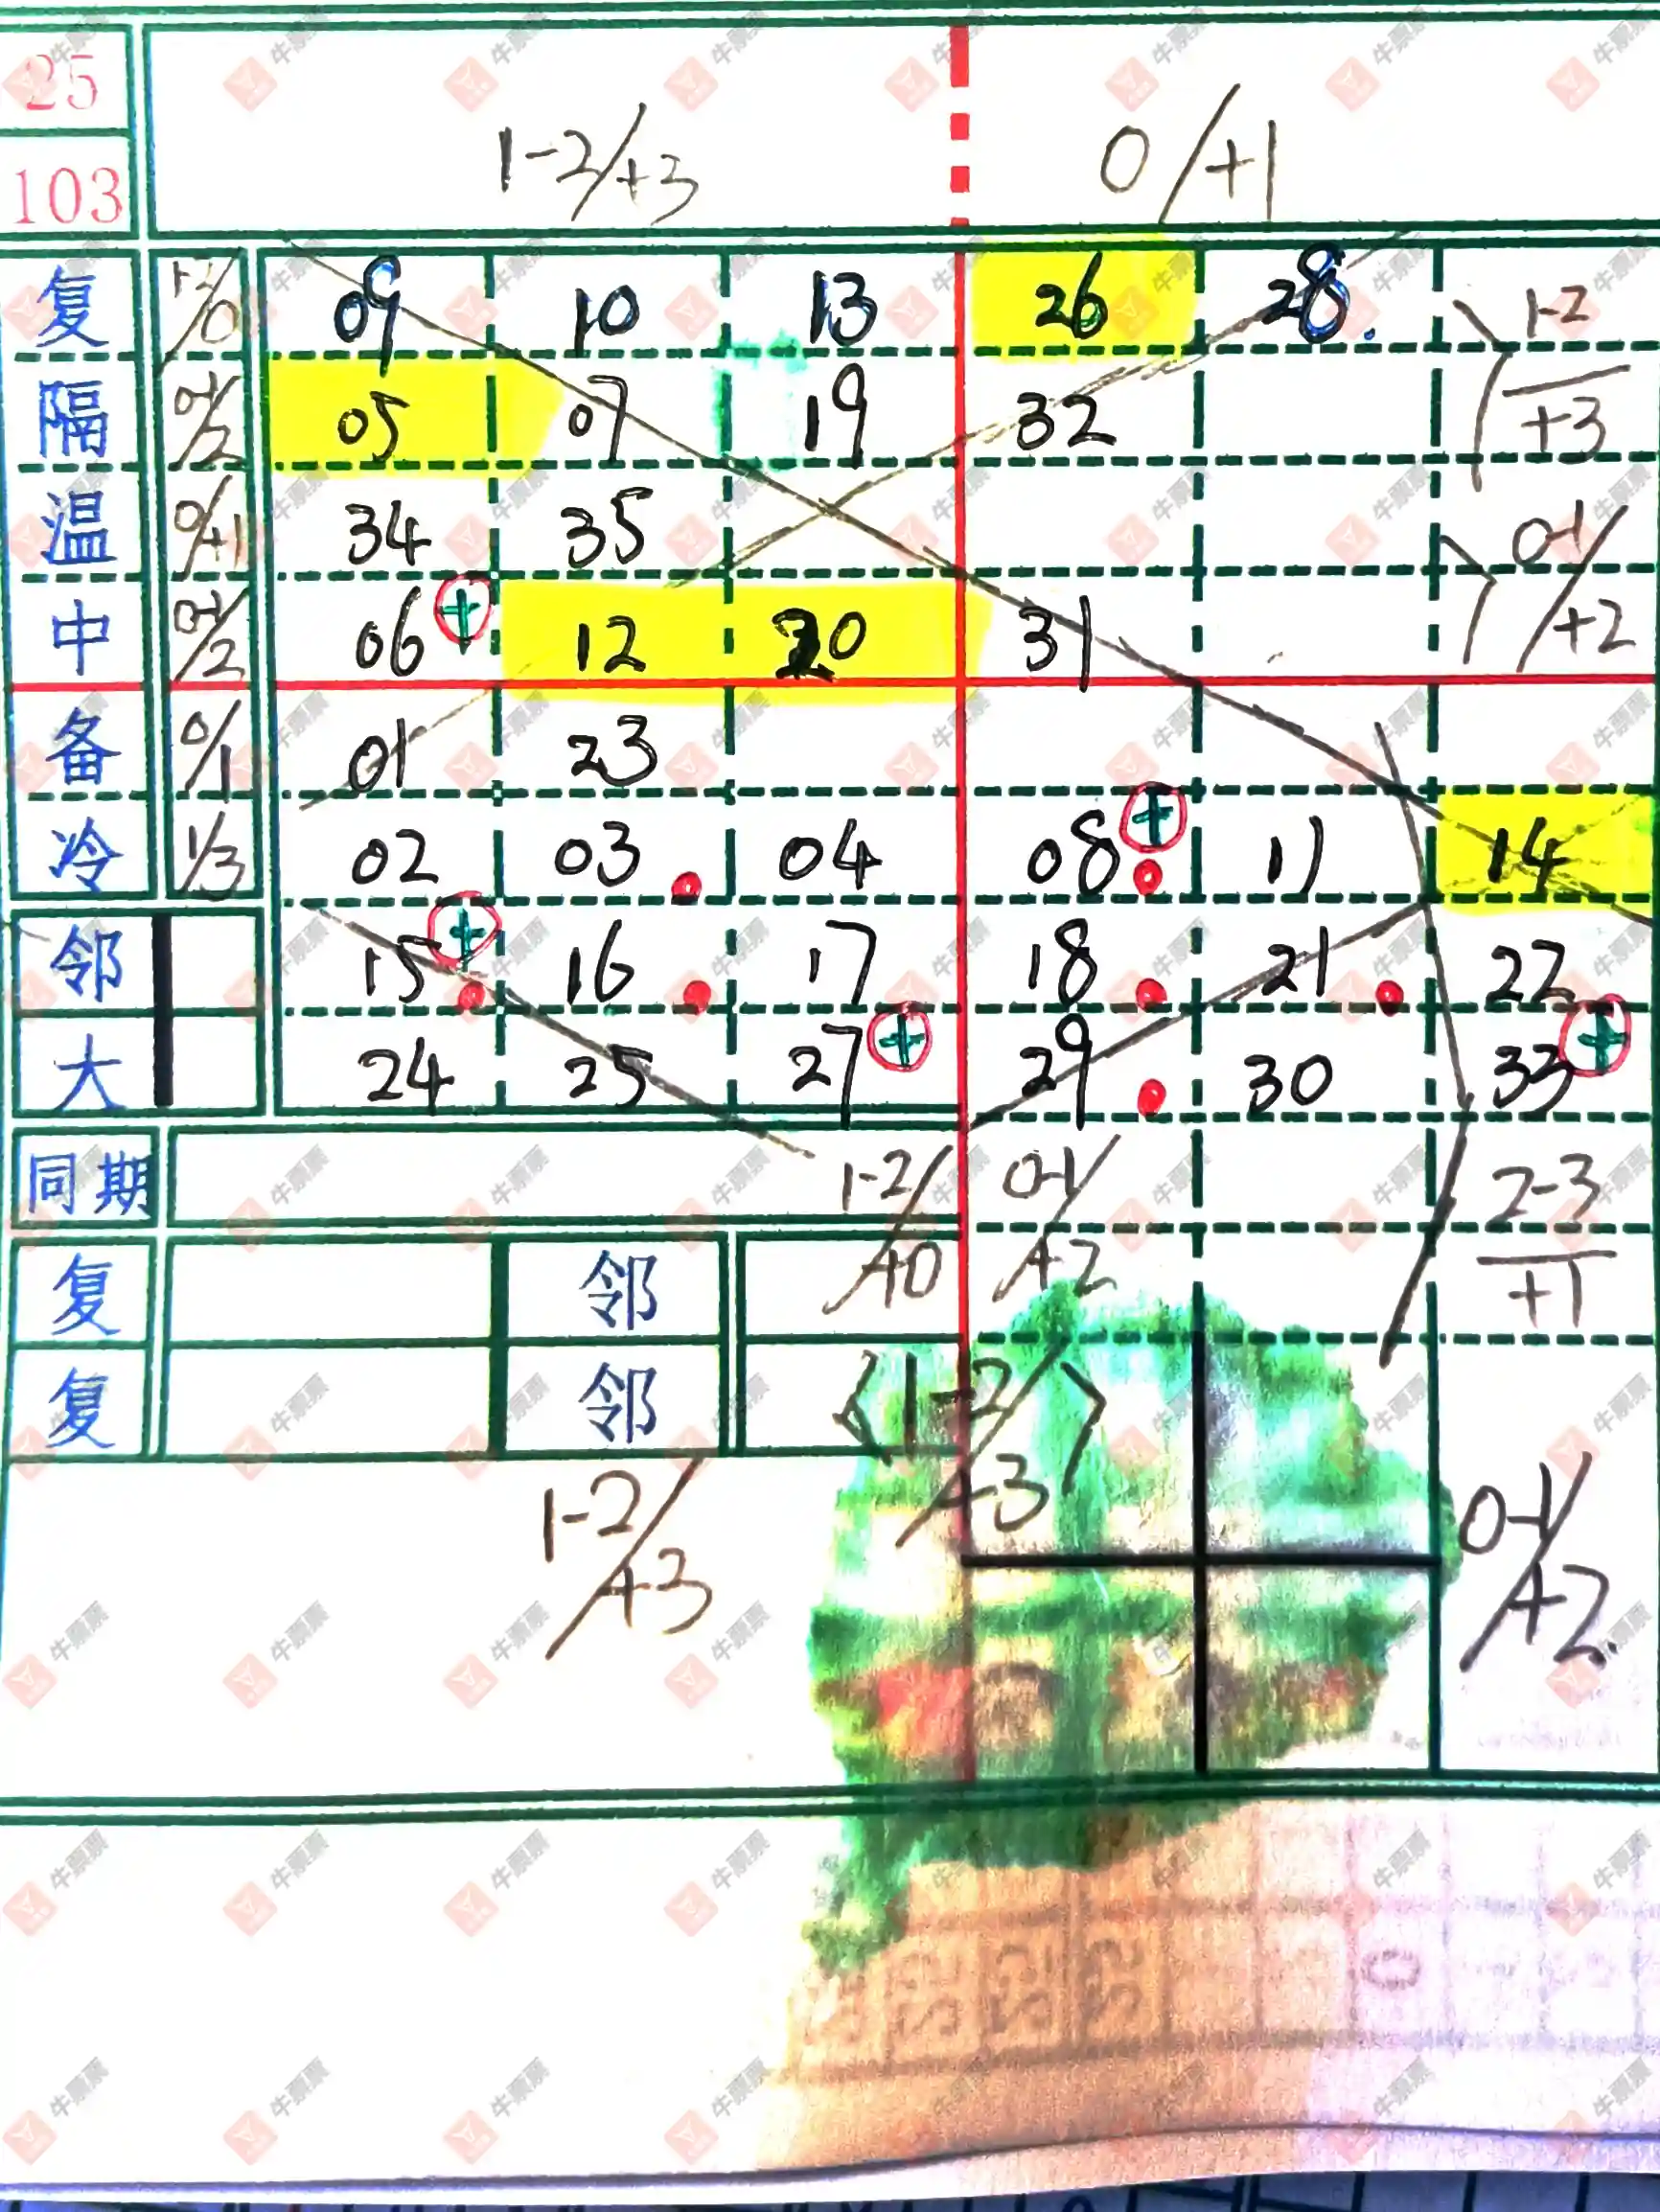 25
103
1-2/+3 0/+1
复 09 10 13 26 28 1-2/+3
隔 0-1/2 05 07 19 32
温 0/+1 34 35 0-1/+2
中 0-1/2 06 + 12 20 31
备 0/1 01 23
冷 1/3 02 03 04 08 + 11 14
邻 15 + 16 17 18 21 22
大 24 25 27 + 29 30 33 +
同期 1-2/+0 0-1/+2 2-3/+1
复 邻
复 邻 〈1-2/+3〉
1-2/+3 0-1/+2
牛票票